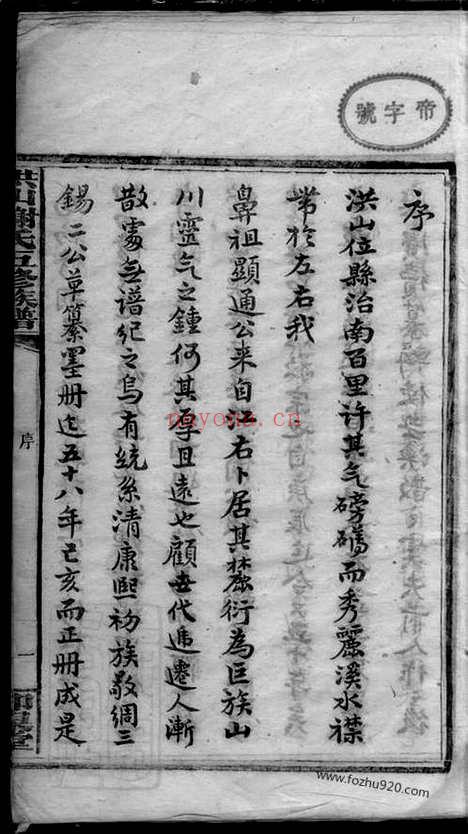 帝字號
序
洪山位縣治南百里許其气磅礴而秀麗溪水襟
帶於左右我
鼻祖顯通公來自江右卜居其麓衍為巨族山
川靈气之鍾何其厚且遠也顧世代遞遷人漸
散處無譜紀之烏有統系清康熙初族敬綢三
錫二公草纂墨册迄五十八年己亥而正册成是
洪山謝氏五修族譜
序
一
nayona.cn
www.fozhu920.com